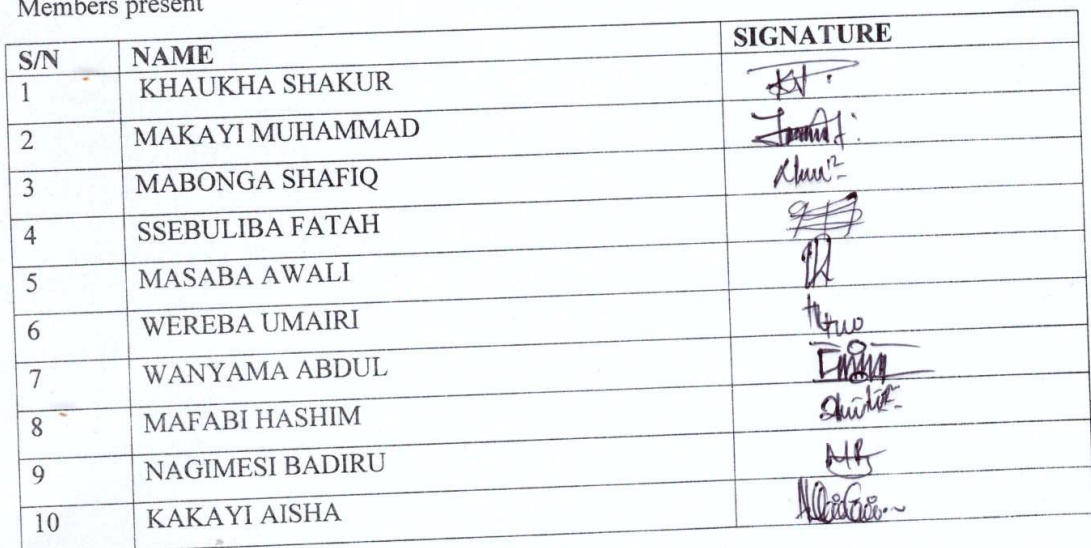 Members present
S/N NAME SIGNATURE
1 KHAUKHA SHAKUR
2 MAKAYI MUHAMMAD
3 MABONGA SHAFIQ
4 SSEBULIBA FATAH
5 MASABA AWALI
6 WEREBA UMAIRI
7 WANYAMA ABDUL
8 MAFABI HASHIM
9 NAGIMESI BADIRU
10 KAKAYI AISHA